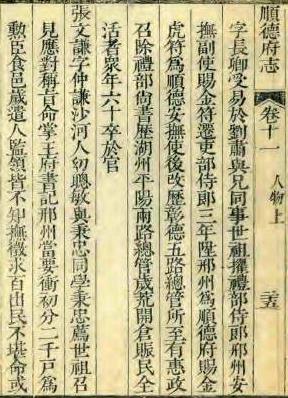 順德府志
卷十一
人物上
三五
字長卿受易於劉肅與兄同事世祖擢禮部侍郎邢州安
撫副使賜金符遷吏部侍郎三年陞邢州為順德府賜金
虎符為順德安撫使後改歷彰德五路總管所至有惠政
召除禮部尚書歷湖州平陽兩路總管歲荒開倉賑民全
活者衆年六十卒於官
張文謙字仲謙沙河人幼聰敏與秉忠同學秉忠薦世祖召
見應對稱旨命掌王府書記邢州當要衝初分二千戸為
勲臣食邑歲遣人監領皆不知撫徵求百出民不堪命或